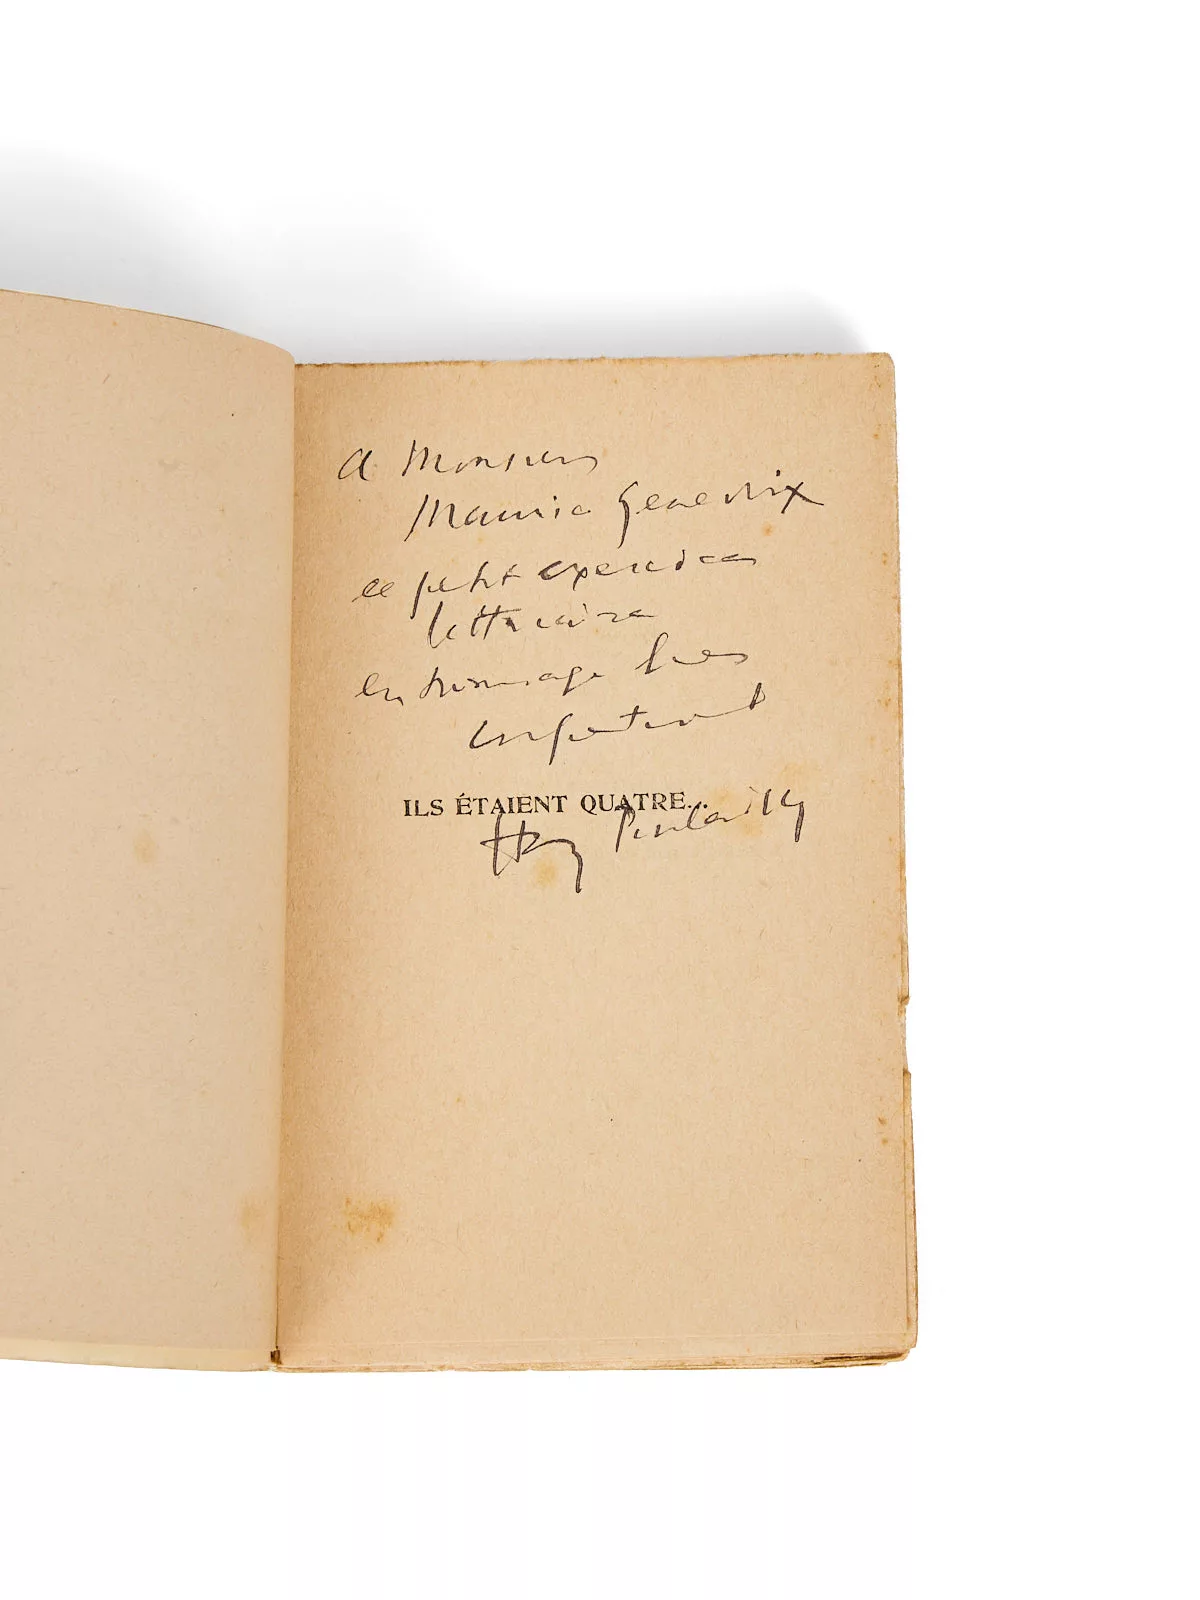 A Monsieur
Maurice Genevoix
ce petit exercice
littéraire
en hommage bien
ILS ÉTAIENT QUATRE...
Henry Poulaille